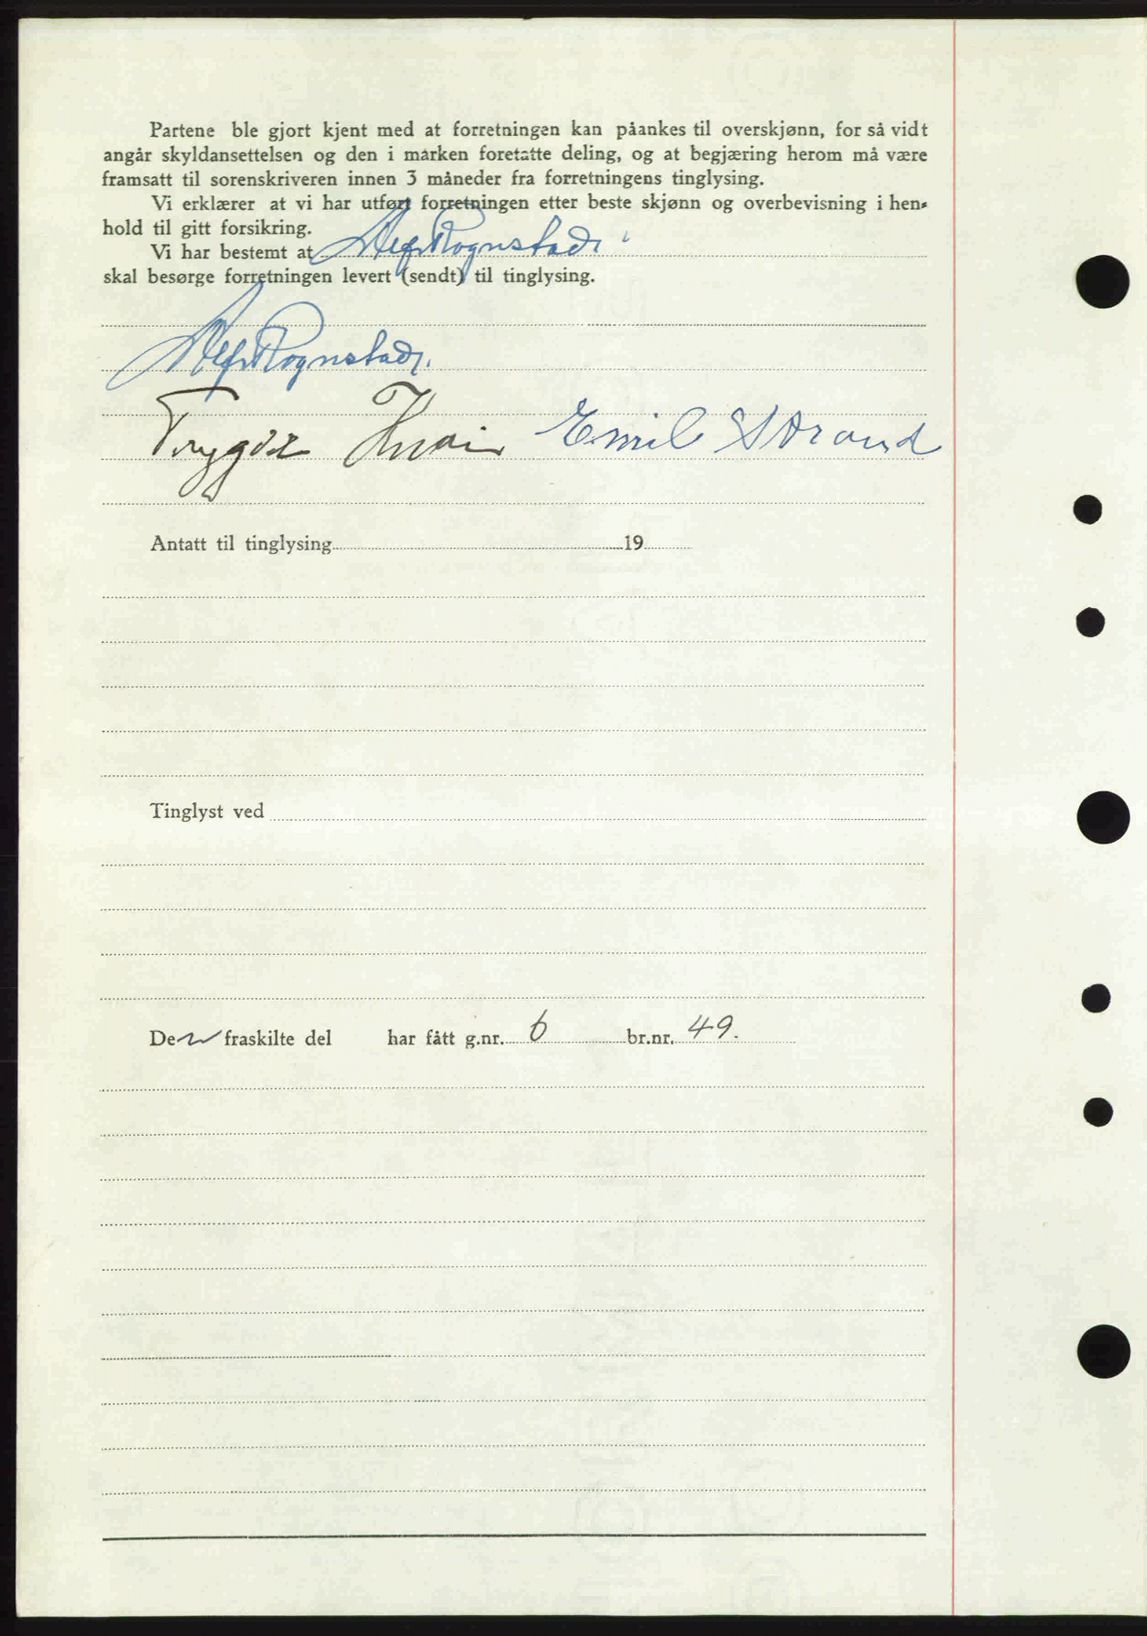 Partene ble gjort kjent med at forretningen kan påankes til overskjønn, for så vidt
angår skyldansettelsen og den i marken foretatte deling, og at begjæring herom må være
framsatt til sorenskriveren innen 3 måneder fra forretningens tinglysing.
Vi erklærer at vi har utført forretningen etter beste skjønn og overbevisning i hen-
hold til gitt forsikring.
Vi har bestemt at Alf Rognstad
skal besørge forretningen levert (sendt) til tinglysing.
Alf Rognstad.
Trygve Emil Strand
Antatt til tinglysing 19
Tinglyst ved
Den fraskilte del har fått g.nr. 6 br.nr. 49.